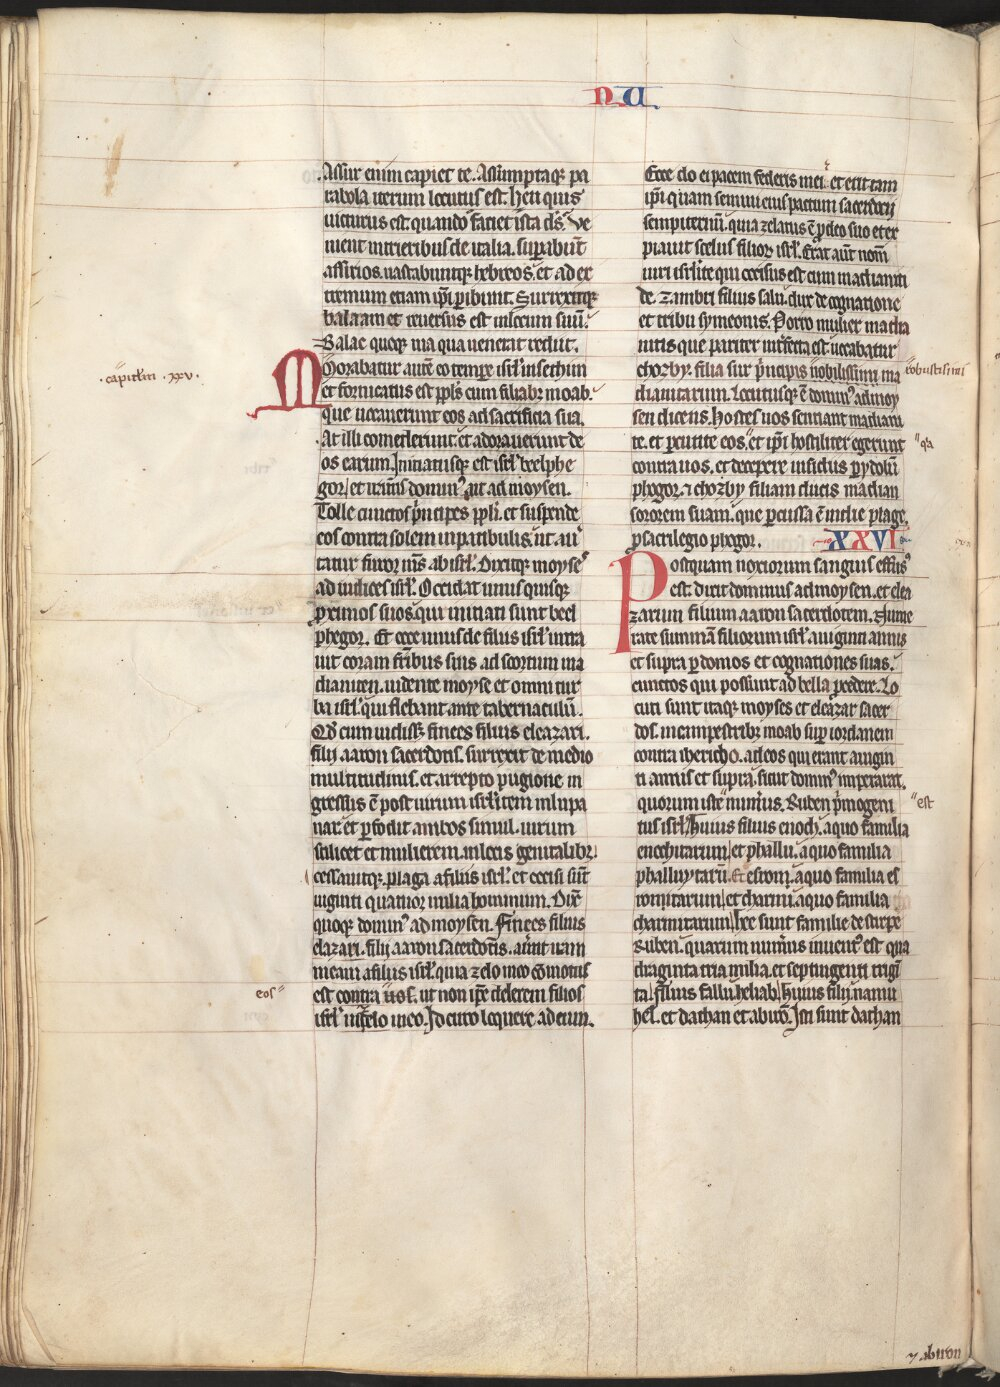 N U
Assur enim capiet te. Assumptaq; pa
rabola iterum locutus est. Heu quis
uicturus est quando faciet ista ds̄. Ve
nient in trieribus de italia. suꝑabūt
assirios. uastabuntq; hebreos. et ad ex
tremum etiam ip̄i ꝑibunt. Surrexitq;
balaam et reuersus est in locum suū.
Balac quoq; uia qua uenerat rediit.
.capitlm .xxv.
Morabatur autē eo tempr̄e isrl̄ in sethim
et fornicatus est ppl̄s cum filiab; moab.
que uocauerunt eos ad sacrificia sua.
At illi comederunt. et adorauerunt de
os earum. Iniciatusq; est isrl̄ beelphe
gor. et iratus dominꝰ ait ad moysen.
Tolle cunctos pͥncipes ppl̄i. et suspende
eos contra solem in patibulis. ut au
tatur furor mͦs ab isrl̄. Dixitq; moyses
ad iudices isrl̄. Occidat unusquisq;
ꝓximos suos. qui initiati sunt beel
phegor. Et ecce unus de filiis isrl̄ intra
uit coram fr̄ibus suis ad scortum ma
dianiten. uidente moyse et omni tur
ba isrl̄. qui flebant ante tabernaculū.
Qd̄ cum uidisset finees filius eleazari.
filij aaron sacerdotis. surrexit de medio
multitudinis. et arrepto pugione in
gressus ē post uirum isrl̄item in lupa
nar. et ꝑfodit ambos simul. uirum
scilicet et mulierem. in locis genitalib;.
cessauitq; plaga a filiis isrl̄. et occisi sūt
uiginti quatuor milia hominum. Dix̄
quoq; dominꝰ ad moysen. Finees filius
elazari. filij aaron sacerdotis. auertit iram
meam a filiis isrl̄. quia zelo meo cōmotus
eos
est contra uos. ut non ip̄e delerem filios
isrl̄ in zelo meo. Idcirco loquere ad eum.
Ecce do ei pacem federis mei. et erit tam
ip̄i quam semini eius pactum sacerdocij
sempiternū. quia zelatus ē ꝓ deo suo et ex
piauit scelus filioꝝ isrl̄. Erat aūt nom̄
uiri isrl̄ite qui occisus est cum madianiti
de. zambri filius salu. dux de cognatione
et tribu symeonis. Porro mulier madia
nitis que pariter intͬfecta est uocabatur
chozby. filia sur pͥncipis nobilissimi ma
robustissimi
dianitarum. Locutusq; ē dominꝰ ad moy
sen dicens. Hostes uos sentiant madiani
te. et ꝑcutite eos. et ip̄i hostiliter egerunt
qͥa
contra uos. et decepere insidiis ꝑ ydolū
phogor. ⁊ chozby filiam ducis madian
sororem suam. que ꝑcussa ē in die plage.
ꝓ sacrilegio phogor. XXVI
Postquam noxiorum sanguis effusꝰ
est. dixit dominus ad moysen. et elea
zarum filium aaron sacerdotem. Nume
rate summā filiorum isrl̄. a uiginti annis
et supra ꝑ domos et cognationes suas.
cunctos qui possunt ad bella ꝓcedere. Lo
cuti sunt itaq; moyses et eleazar sacer
dos. in campestrib; moab suꝑ iordanem
contra ihericho. ad eos qui erant a uigin
ti annis et supra. sicut dominꝰ imperarat.
quorum iste numͬus. Ruben pͥmogeni
est
tus isrl̄. Huius filius enoch. a quo familia
enochitarum. et phallu. a quo familia
phalluytarū. Et esrom. a quo familia es
romitarum. et charmi. a quo familia
charmitarum. hee sunt familie de stirpe
Ruben. quarum numͬus inuentꝰ est qua
draginta tria milia. et septingenti trigī
ta. filius fallu. heliab. huius filij namu
hel. et dathan et abirō. Isti sunt dathan
⁊ abiron